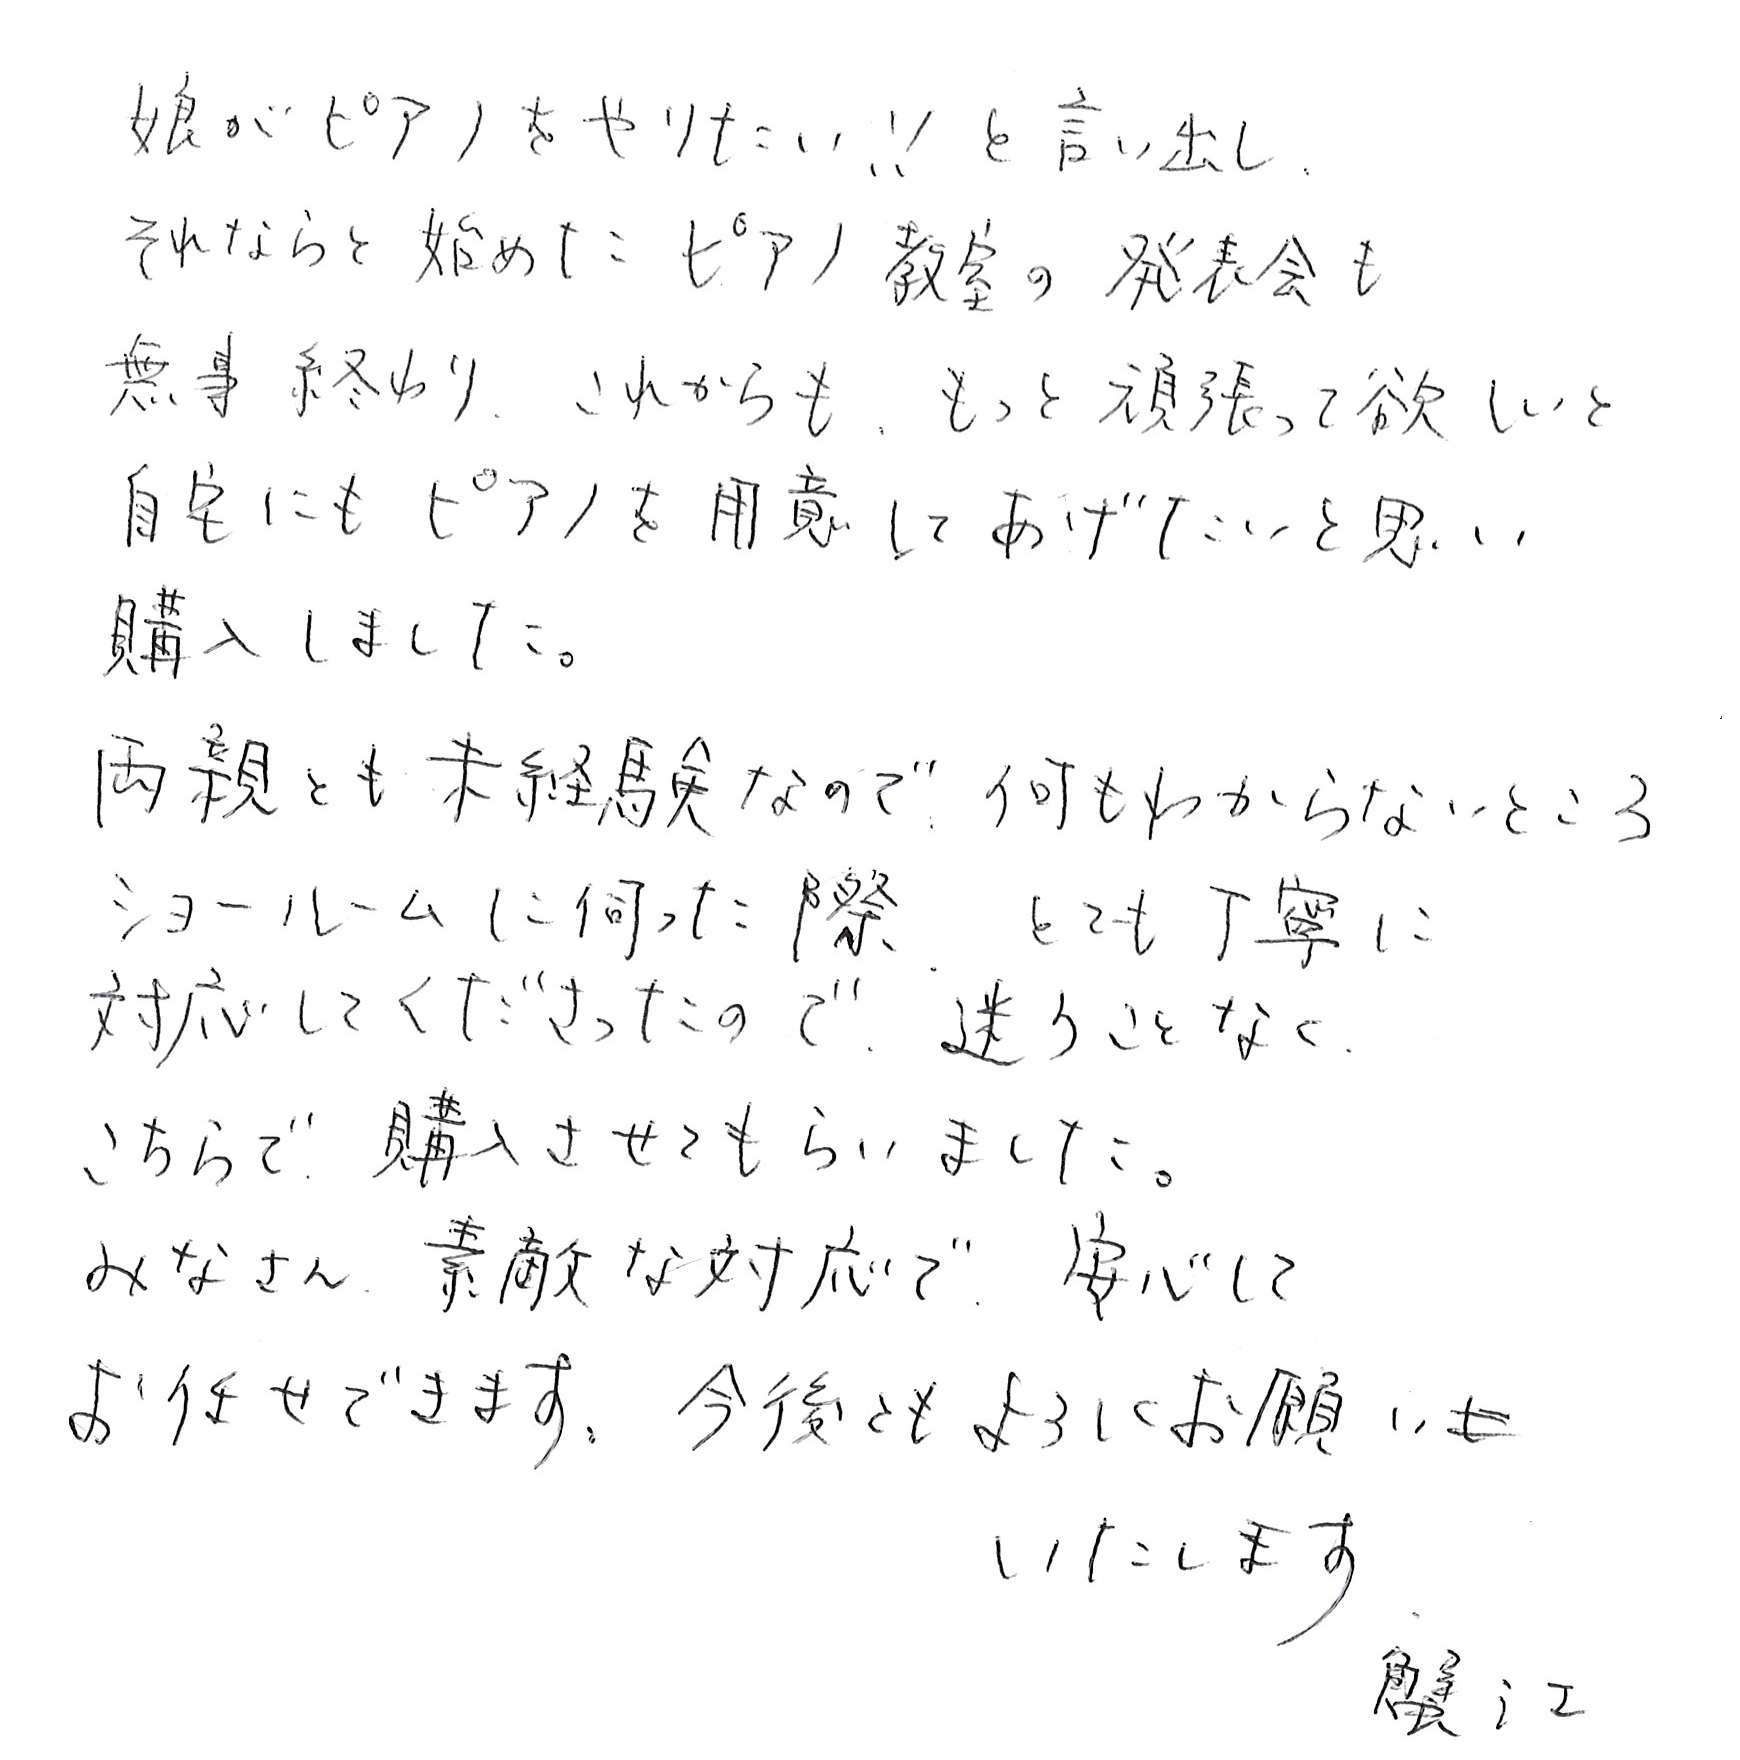 娘がピアノをやりたい!!と言い出し、
それならと始めたピアノ教室の発表会も
無事終わり、これからも、もっと頑張って欲しいと
自宅にもピアノを用意してあげたいと思い
購入しました。
両親とも未経験なので、何もわからないところ
ショールームに伺った際、とても丁寧に
対応してくださったので、迷うことなく、
こちらで、購入させてもらいました。
みなさん、素敵な対応で、安心して
お任せできます。今後ともよろしくお願い
いたします
蟹江